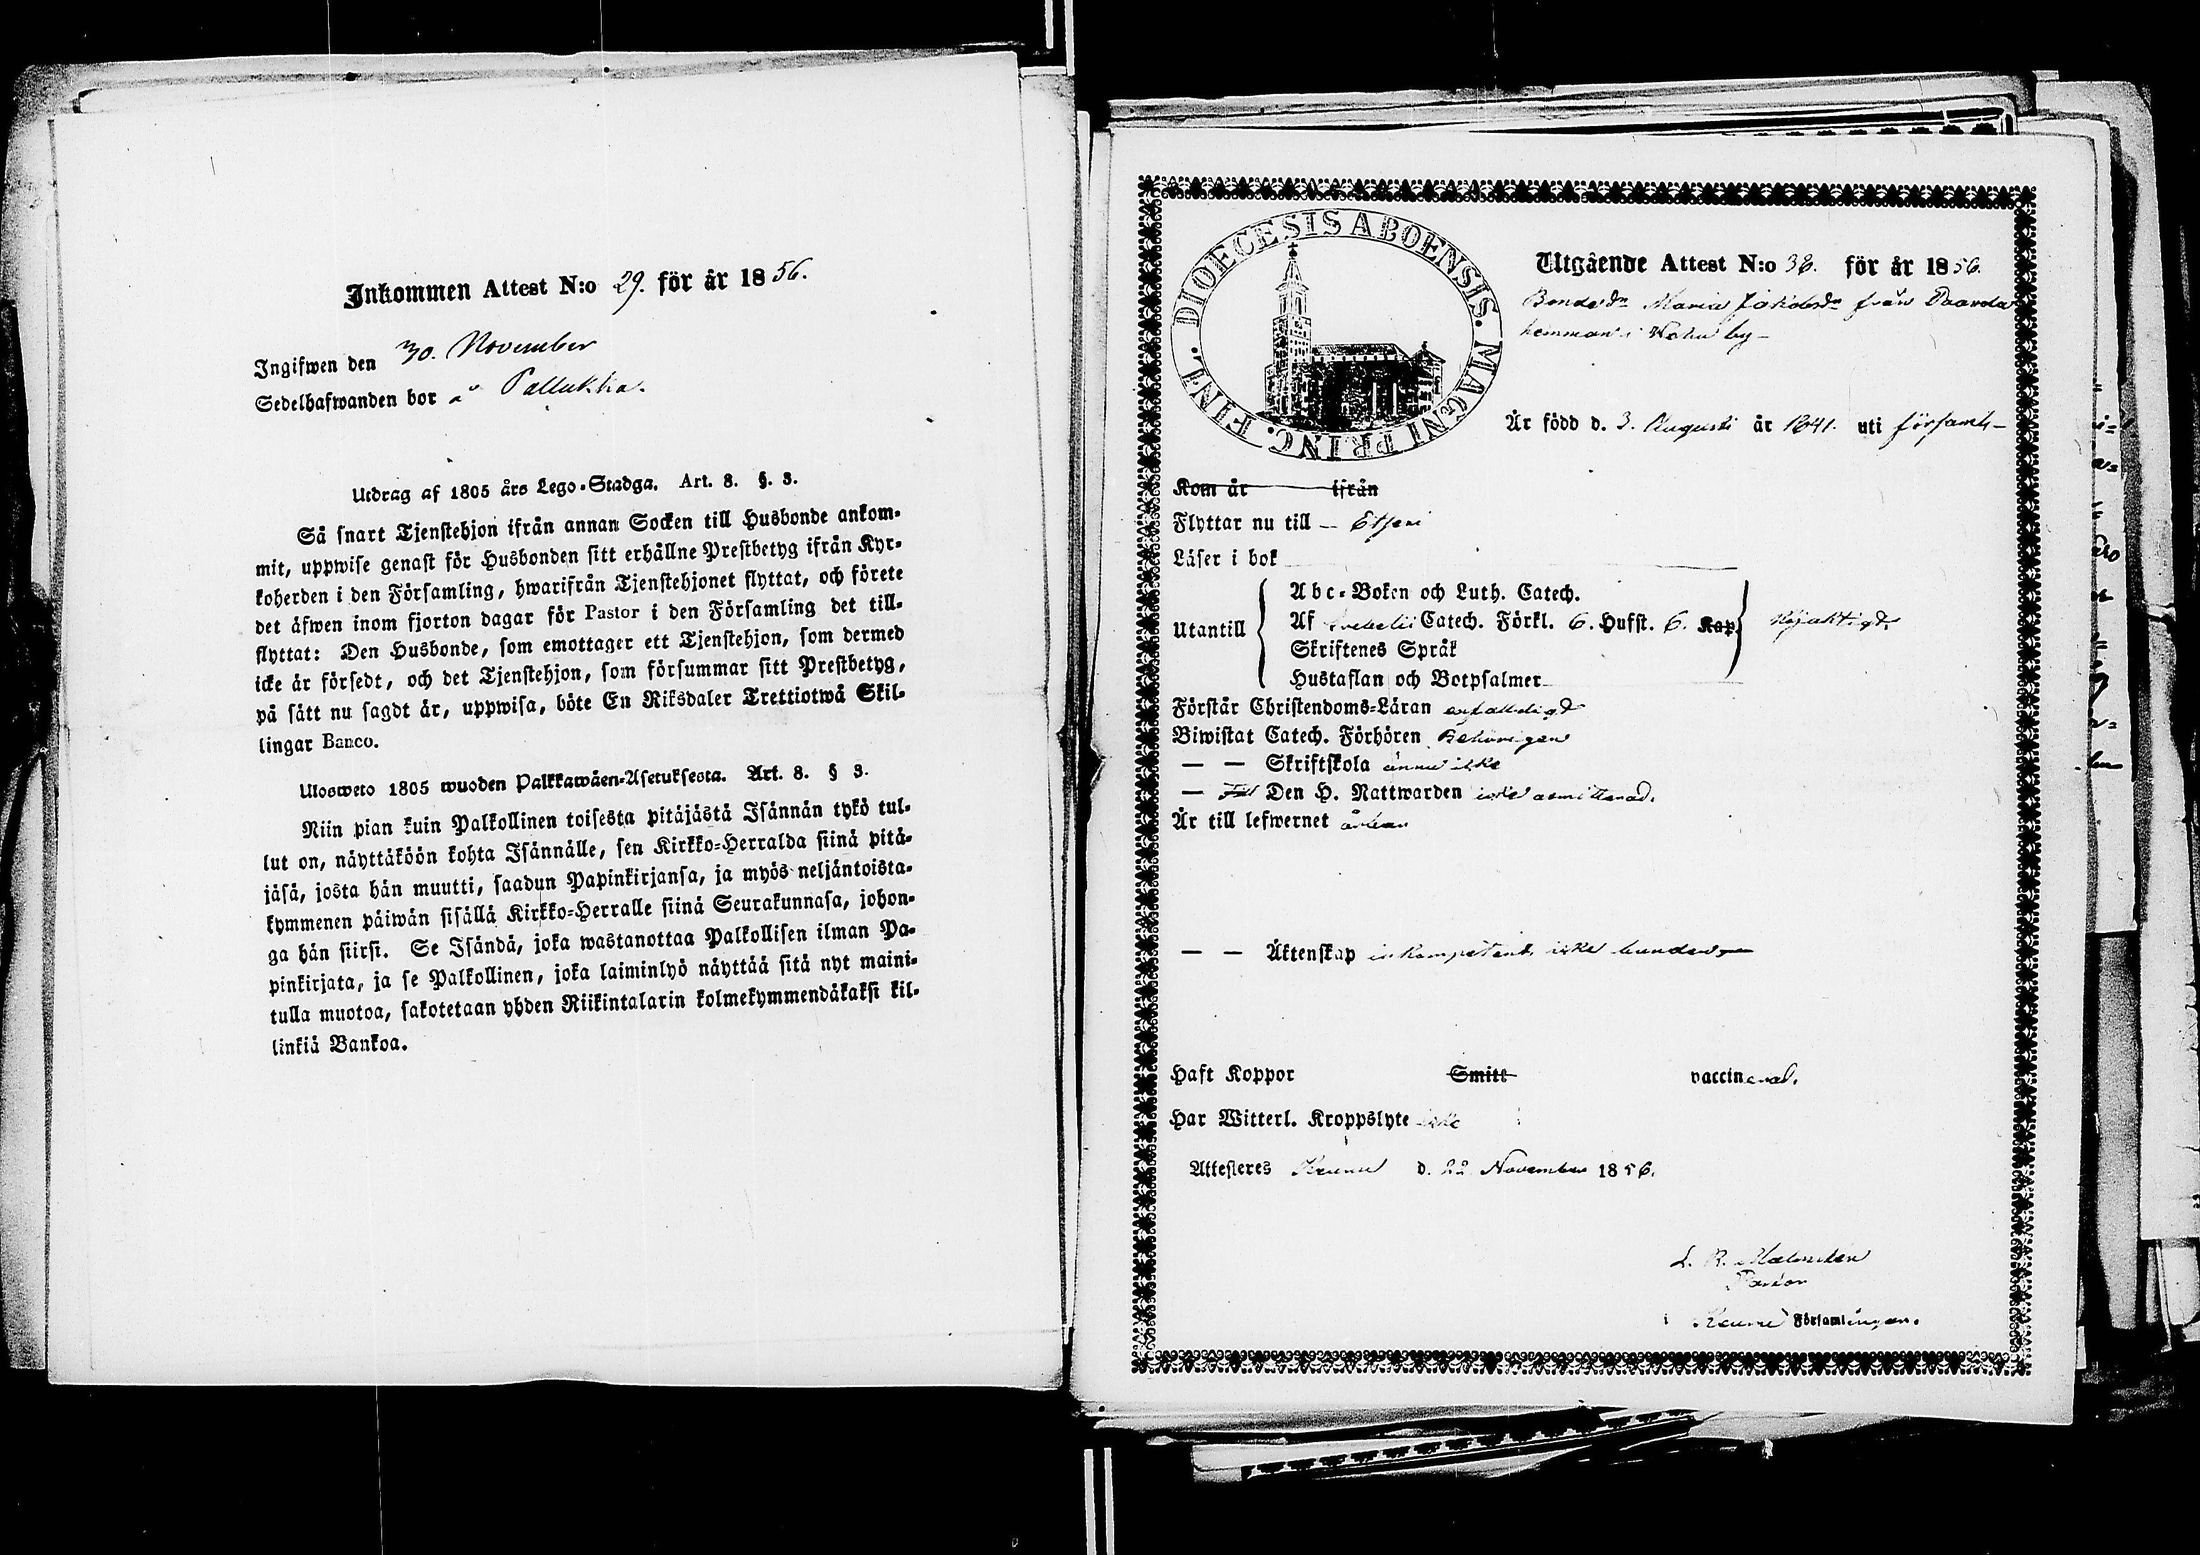 Inkommen Attest N:o 29. för år 1856.
Ingifwen den 30. November
Sedelhafwanden bor å Pellukka.
Utdrag af 1805 års Lego-Stadga. Art. 8. §. 3.
Så snart Tjenstehjon ifrån annan Socken till Husbonde ankom-
mit, uppwise genast för Husbonden sitt erhållne Prestbetyg ifrån Kyr-
koherden i den Församling, hwarifrån Tjenstehjonet flyttat, och förete
det äfwen inom fjorton dagar för Pastor i den Församling det till-
flyttat: Den Husbonde, som emottager ett Tjenstehjon, som dermed
icke är försedt, och det Tjenstehjon, som försummar sitt Prestbetyg,
på sätt nu sagdt är, uppwisa, böte En Riksdaler Trettiotwå Skil-
lingar Banco.
Ulosweto 1805 wuoden Palkkawäen-Asetuksesta. Art. 8. § 3.
Niin pian kuin Palkollinen toisesta pitäjästä Isännän tykö tul-
lut on, näyttäköön kohta Isännälle, sen Kirkko-Herralda siinä pitä-
jäsä, josta hän muutti, saadun Papinkirjansa, ja myös neljäntoista-
kymmenen päiwän sisällä Kirkko-Herralle siinä Seurakunnasa, johon-
ga hän siirsi. Se Isändä, joka wastanottaa Palkollisen ilman Pa-
pinkirjata, ja se Palkollinen, joka laiminlyö näyttää sitä nyt maini-
tulla muotoa, sakotetaan yhden Riikintalarin kolmekymmendäkaksi kil-
linkiä Bankoa.
DIOECESIS ABOENSIS. MAGNI PRINC. FINL.
Utgående Attest N:o 38. för år 1856.
Bondedr Maria Jakobsdr från Paarda
hemman i by
Är född d. 3. Augusti år 1841. uti församl-
Kom år ifrån
Flyttar nu till Etseri
Läser i bok
Utantill
Abc-Boken och Luth. Catech.
Af Svebelii Catech. Förkl. 6. Hufst. 6. Kap. Nöjaktigt
Skriftenes Språk
Hustaflan och Botpsalmer
Förstår Christendoms-Läran enfaldigt
Biwistat Catech. Förhören Behörigen
— — Skriftskola ännu icke
— Till Den H. Nattwarden icke admitterad.
Är till lefwernet ärbar
— — Äktenskap inkompetent icke bunden
Haft Koppor Smitt vaccinerad.
Har Witterl. Kroppslyte icke
Attesteres Keuru d. 22 November 1856.
Pastor
i Keuru Församlingen.